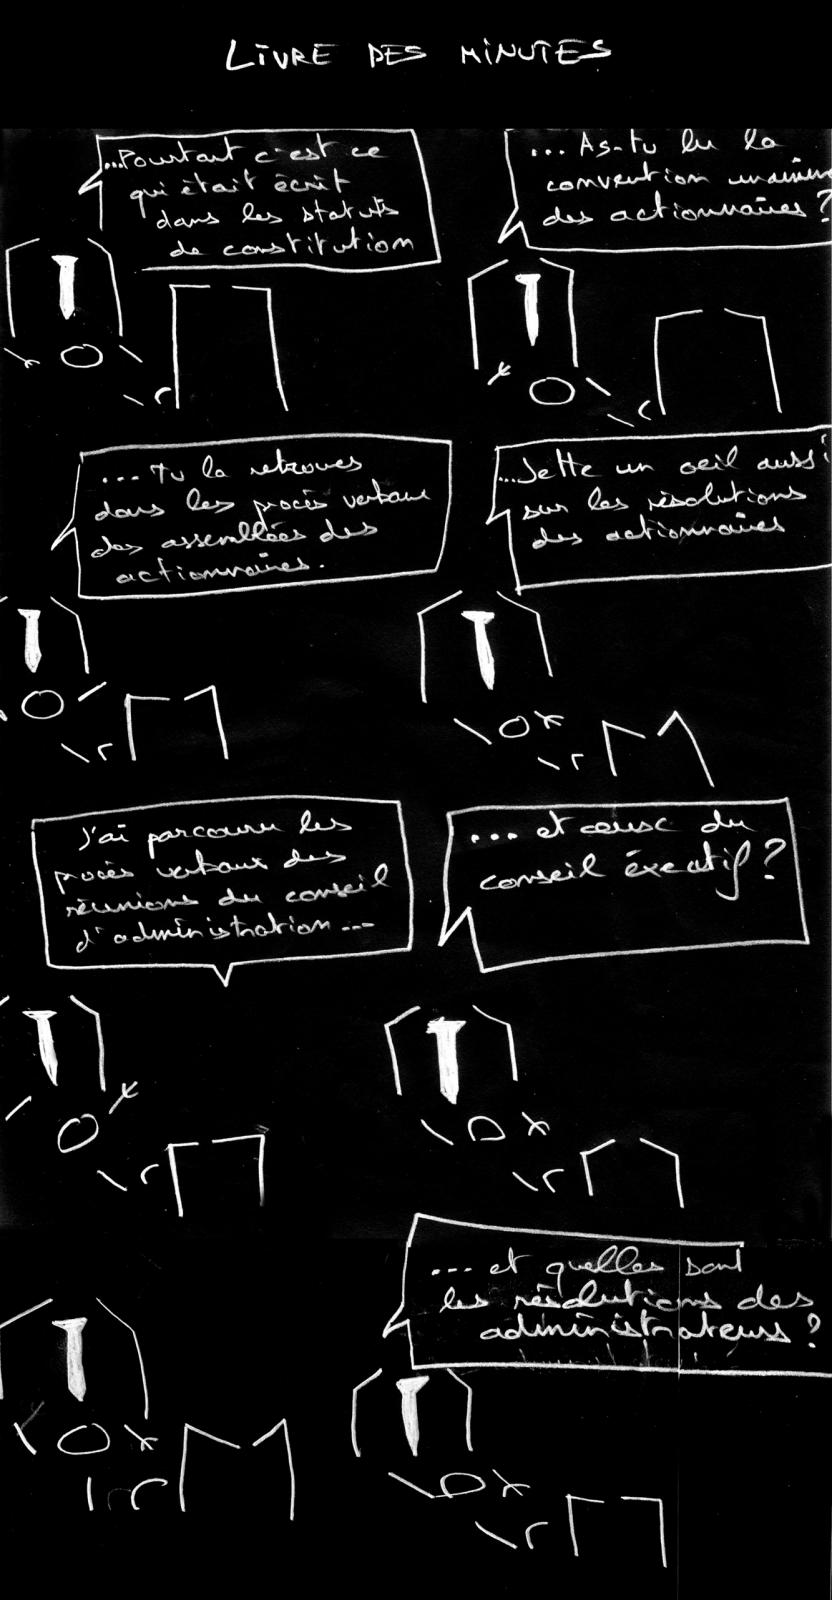 LIVRE DES MINUTES
...Pourtant c'est ce
qui était écrit
dans les statuts
de constitution
... As-tu lu la
convention unanime
des actionnaires ?
... Tu la retrouves
dans les procès verbaux
des assemblées des
actionnaires.
...Jette un oeil aussi
sur les résolutions
des actionnaires
J'ai parcouru les
procès verbaux des
réunions du conseil
d'administration...
... et ceux du
conseil éxecutif ?
... et quelles sont
les résolutions des
administrateurs ?